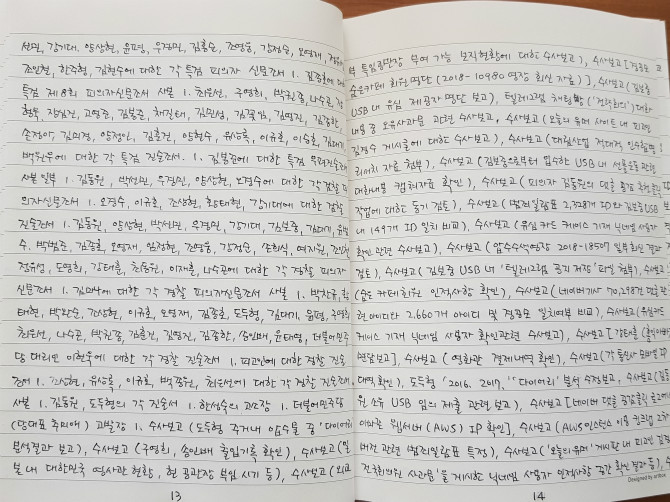 선민, 강기대, 양상현, 윤평, 우경민, 김홍순, 조영웅, 강정순, 오영재,
조민형, 한주형, 김현수에 대한 각 특검 피의자 신문조서 1. 김종호에 대한
특검 제8회 피의자신문조서 사본 1. 최은선, 구영희, 박권종, 나수곤,
현욱, 장심건, 고영준, 김봉준, 최진태, 김민성, 김영진, 김종한,
손장아, 김의정, 양정인, 김홍건, 양현수, 유승록, 이규호, 이승훈, 김대기,
백원우에 대한 각 특검 진술조서. 1. 김봉준에 대한 특검 우편진술조서
사본 일부 1. 김동원, 박선민, 우경민, 양상현, 오경수에 대한 각 검찰 피
의자신문조서 1. 오경수, 이규호, 조상현, 황태현, 강기대에 대한 검찰
진술조서 1. 김동원, 양상현, 박선민, 우경민, 강기대, 김보종, 김대기,
수, 박범준, 김종호, 오영재, 임정현, 조영웅, 강정순, 조희식, 여지원,
정유성, 도영희, 강태훈, 최동원, 이재훈, 나수곤에 대한 각 경찰 피의자
신문조서 1. 김미나에 대한 각 경찰 피의자신문조서 사본 1. 박찬규,
태현, 박완순, 조상현, 이규호, 오영재, 김종호, 도두형, 김대기, 윤평, 구영희
최은선, 나수곤, 박권종, 김홍건, 김영진, 김종한, 송인배, 윤태영, 더불어민주
당 대리인 이현우에 대한 각 경찰 진술조서 1. 피고인에 대한 경찰 진술
조서 1. 조상현, 유상용, 이규호, 박종원, 최은선에 대한 각 경찰 진술조서
사본 1. 김동원, 도두형의 각 진술서 1. 한성수의 고소장 1. 더불어민주당
(당대표 추미애) 고발장 1. 수사보고 (도두형 주거내 압수물 중 '다이어리'
분석결과 보고), 수사보고 (구영희, 송인배 출입기록 확인), 수사보고 (일
본 내 대한민국 영사관 현황, 현 공관장 부임 시기 등), 수사보고 (외교
13
부 특임공관장 부여 가능 보직현황에 대한 수사보고), 수사보고 [경공모
숨은카페 회원명단 (2018-10980 영장 회신 자료)], 수사보고 (김보종
USB 내 유심 제공자 명단 보고), 텔레그램 채팅방('전략회의') 대화
내용 중 오유사과문 관련 수사보고, 수사보고 (오늘의 유머 사이트 내 피고인
김경수 게시글에 대한 수사보고), 수사보고 (대림산업 전대적 인수합병
리서치 자료 첨부), 수사보고 (김보종으로부터 압수한 USB 내 선플운동 관련
대화내용 캡쳐자료 확인), 수사보고 (피의자 김동원의 댓글 활동 관련
작업에 대한 동기 검토), 수사보고 (범죄일람표 2,328개 ID와 김보종 USB
내 149개 ID 일치 비교), 수사보고 (유심 카드 케이스 기재 닉네임 사용자
확인 관련 수사보고), 수사보고 (압수수색영장 2018-18507 일부회신 결과
검토), 수사보고 (김보종 USB 내 '텔레그램 공지 저장' 파일 첨부),
(숨은 카페 회원 인적사항 확인), 수사보고 (네이버 기사 70,298건 댓글
련 아이디와 2,660개 아이디 및 경공모 일치여부 비교), 수사보고 (유심카드
케이스 기재 닉네임 사용자 확인관련 수사보고), 수사보고 [강태훈
면담보고], 수사보고 (영화관 결제내역 확인), 수사보고 (각 통신사 모바일
대역 확인), 도두형 '2016, 2017, '다이어리' 분석 수정보고, 수사보고 (김동
원 소유 USB 임의 제출 관련 보고), 수사보고 [네이버 댓글 공감클릭 로그
이와중 웹서버(AWS) IP 확인], 수사보고 (AWS인스턴스 이용 킹크랩 2차
버전 관련 범죄일람표 특정), 수사보고 ('오늘의 유머' 게시판 내 피고인 김경
전국회의원 사과문'을 게시한 닉네임 사용자 인적사항 중간 확인 결과 등),
14
Designed by artbox